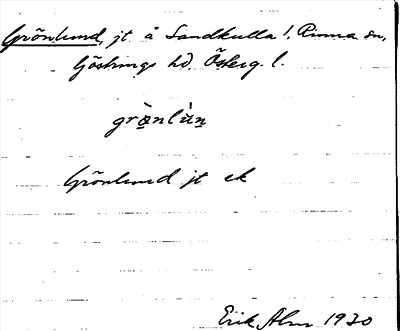 Grönlund, jt å Sandkulla l. Rinna sn,
Göstrings hd. Österg. l.
grò̀nlùn
Grönlund jt ek
Erik Alm 1930